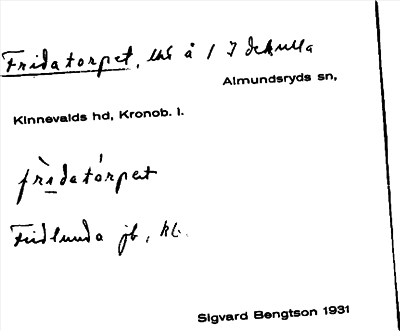 Fridatorpet, lht å 1 J Dekulla
Almundsryds sn,
Kinnevalds hd, Kronob. l.
frìdatórpet
Fridlunda jb, kb.
Sigvard Bengtson 1931